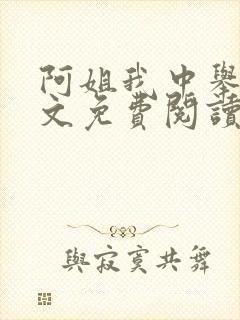 阿姐我中舉
文免費閱讀
與寂寞共舞